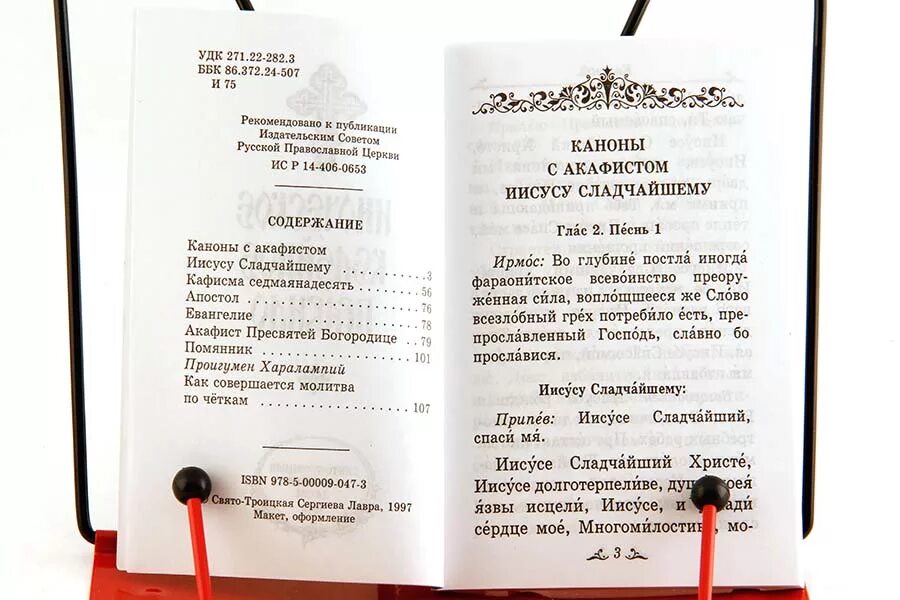 УДК 271.22-282.3
ББК 86.372.24-507
И 75
Рекомендовано к публикации
Издательским Советом
Русской Православной Церкви
ИС Р 14-406-0653
СОДЕРЖАНИЕ
Каноны с акафистом
Иисусу Сладчайшему . . . . . . . . . 3
Кафисма седмаянадесять . . . . . . . 56
Апостол . . . . . . . . . . . . . . . . . . 76
Евангелие . . . . . . . . . . . . . . . . 78
Акафист Пресвятей Богородице . . 79
Помянник . . . . . . . . . . . . . . . . 101
Проигумен Харалампий
Как совершается молитва
по чёткам . . . . . . . . . . . . . . . . 107
ISBN 978-5-00009-047-3
© Свято-Троицкая Сергиева Лавра, 1997
Макет, оформление
КАНОНЫ
С АКАФИСТОМ
ИИСУСУ СЛАДЧАЙШЕМУ
Гла́с 2. Пе́снь 1
Ирмо́с: Во глубине́ постла́ иногда́
фараони́тское всево́инство преору-
же́нная си́ла, вопло́щшееся же Сло́во
всезло́бный гре́х потреби́ло е́сть, пре-
просла́вленный Госпо́дь, сла́вно бо
просла́вися.
Иису́су Сладча́йшему:
Припе́в: Иису́се Сладча́йший,
спаси́ мя́.
Иису́се Сладча́йший Христе́,
Иису́се долготерпели́ве, моея́
я́звы исцели́, Иису́се, и
се́рдце мое́, Многоми́лостиве, мо-
3